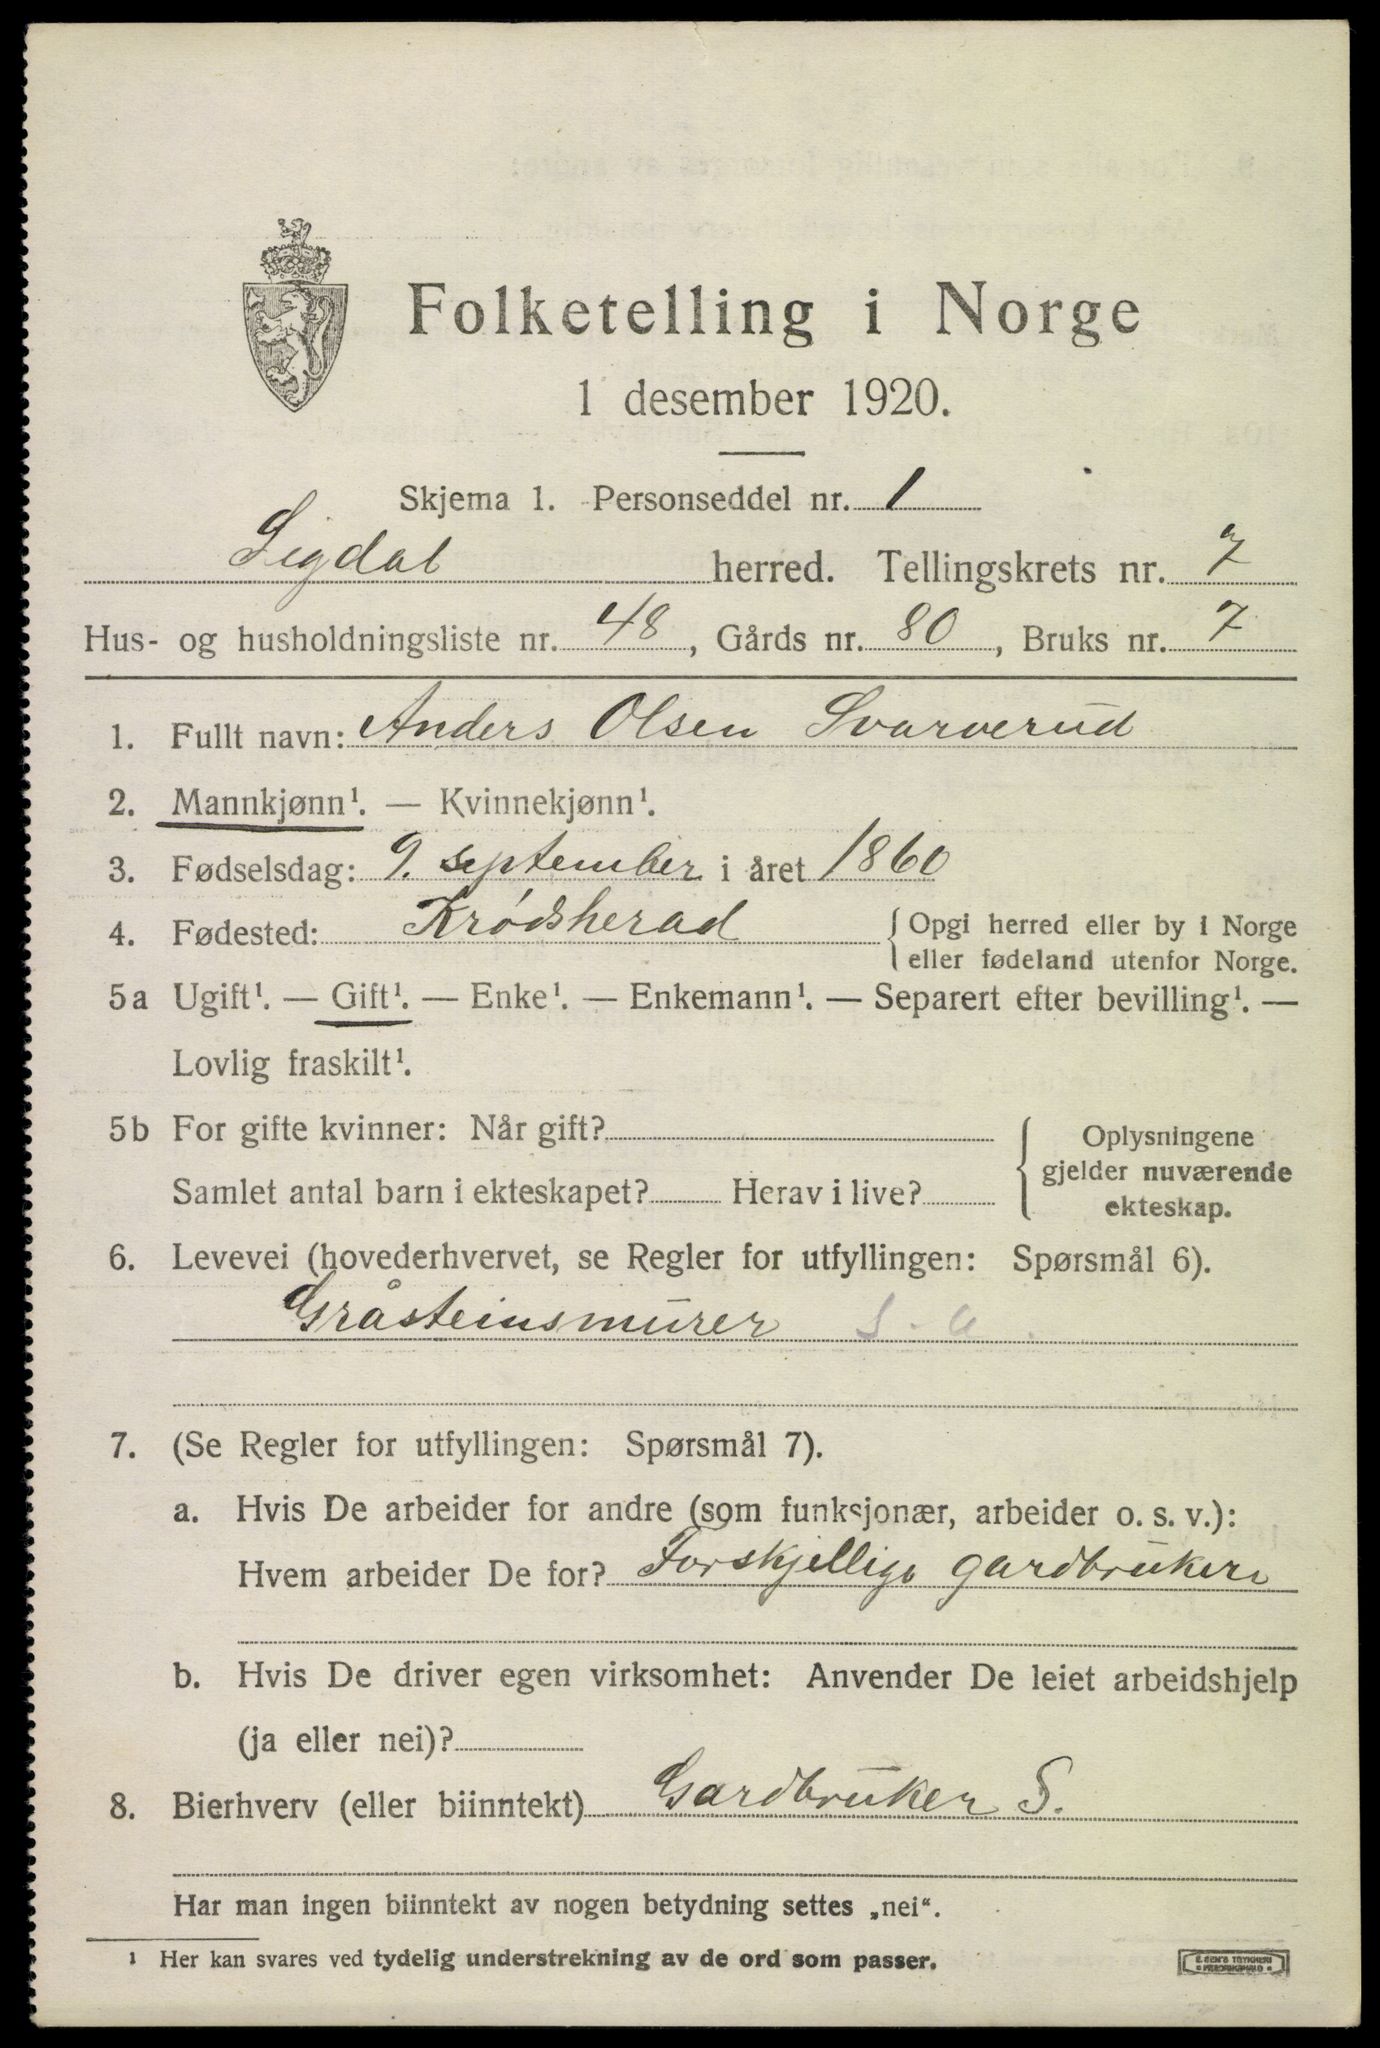 Folketelling i Norge
1 desember 1920.
Skjema 1. Personseddel nr. 1
Sigdal herred. Tellingskrets nr. 7
Hus- og husholdningsliste nr. 48, Gårds nr. 80, Bruks nr. 7
1. Fullt navn: Anders Olsen Svarverud
2. Mannkjønn¹. — Kvinnekjønn¹.
3. Fødselsdag: 9. september i året 1860
4. Fødested: Krødsherad { Opgi herred eller by i Norge
eller fødeland utenfor Norge.
5a Ugift¹. — Gift¹. — Enke¹. — Enkemann¹. — Separert efter bevilling¹. —
Lovlig fraskilt¹.
5b For gifte kvinner: Når gift?
Samlet antal barn i ekteskapet? Herav i live?
{ Oplysningene
gjelder nuværende
ekteskap.
6. Levevei (hovederhvervet, se Regler for utfyllingen: Spørsmål 6).
Gråsteinsmurer
7. (Se Regler for utfyllingen: Spørsmål 7).
a. Hvis De arbeider for andre (som funksjonær, arbeider o. s. v.):
Hvem arbeider De for? Forskjellige gardbrukere
b. Hvis De driver egen virksomhet: Anvender De leiet arbeidshjelp
(ja eller nei)?
8. Bierhverv (eller biinntekt) Gardbruker S.
Har man ingen biinntekt av nogen betydning settes „nei“.
¹ Her kan svares ved tydelig understrekning av de ord som passer.